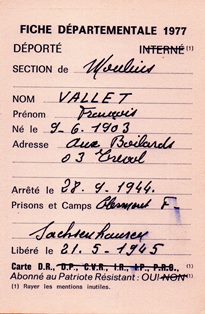 FICHE DÉPARTEMENTALE 1977
DÉPORTÉ INTERNÉ (1)
SECTION de Moulins
NOM VALLET
Prénom François
Né le 9-6-1903
Adresse aux Boilards
03 Creval
Arrêté le 28-9-1944.
Prisons et Camps Clermont F-
Sachsenhausen
Libéré le 21-5-1945
Carte D.R., D.P., C.V.R., I.R., I.P., P.R.O., (1)
Abonné au Patriote Résistant: OUI NON (1)
(1) Rayer les mentions inutiles.